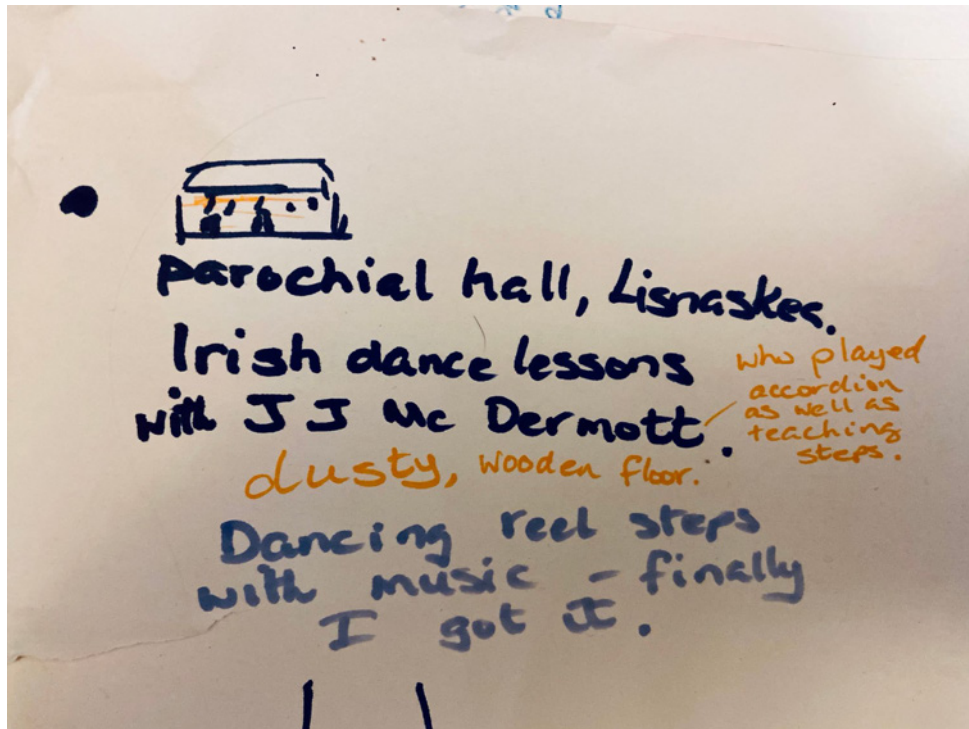 Parochial hall, Lisnaskea.
Irish dance lessons
with J J Mc Dermott.
who played
accordion
as well as
teaching
steps.
dusty, wooden floor.
Dancing reel steps
with music - finally
I got it.